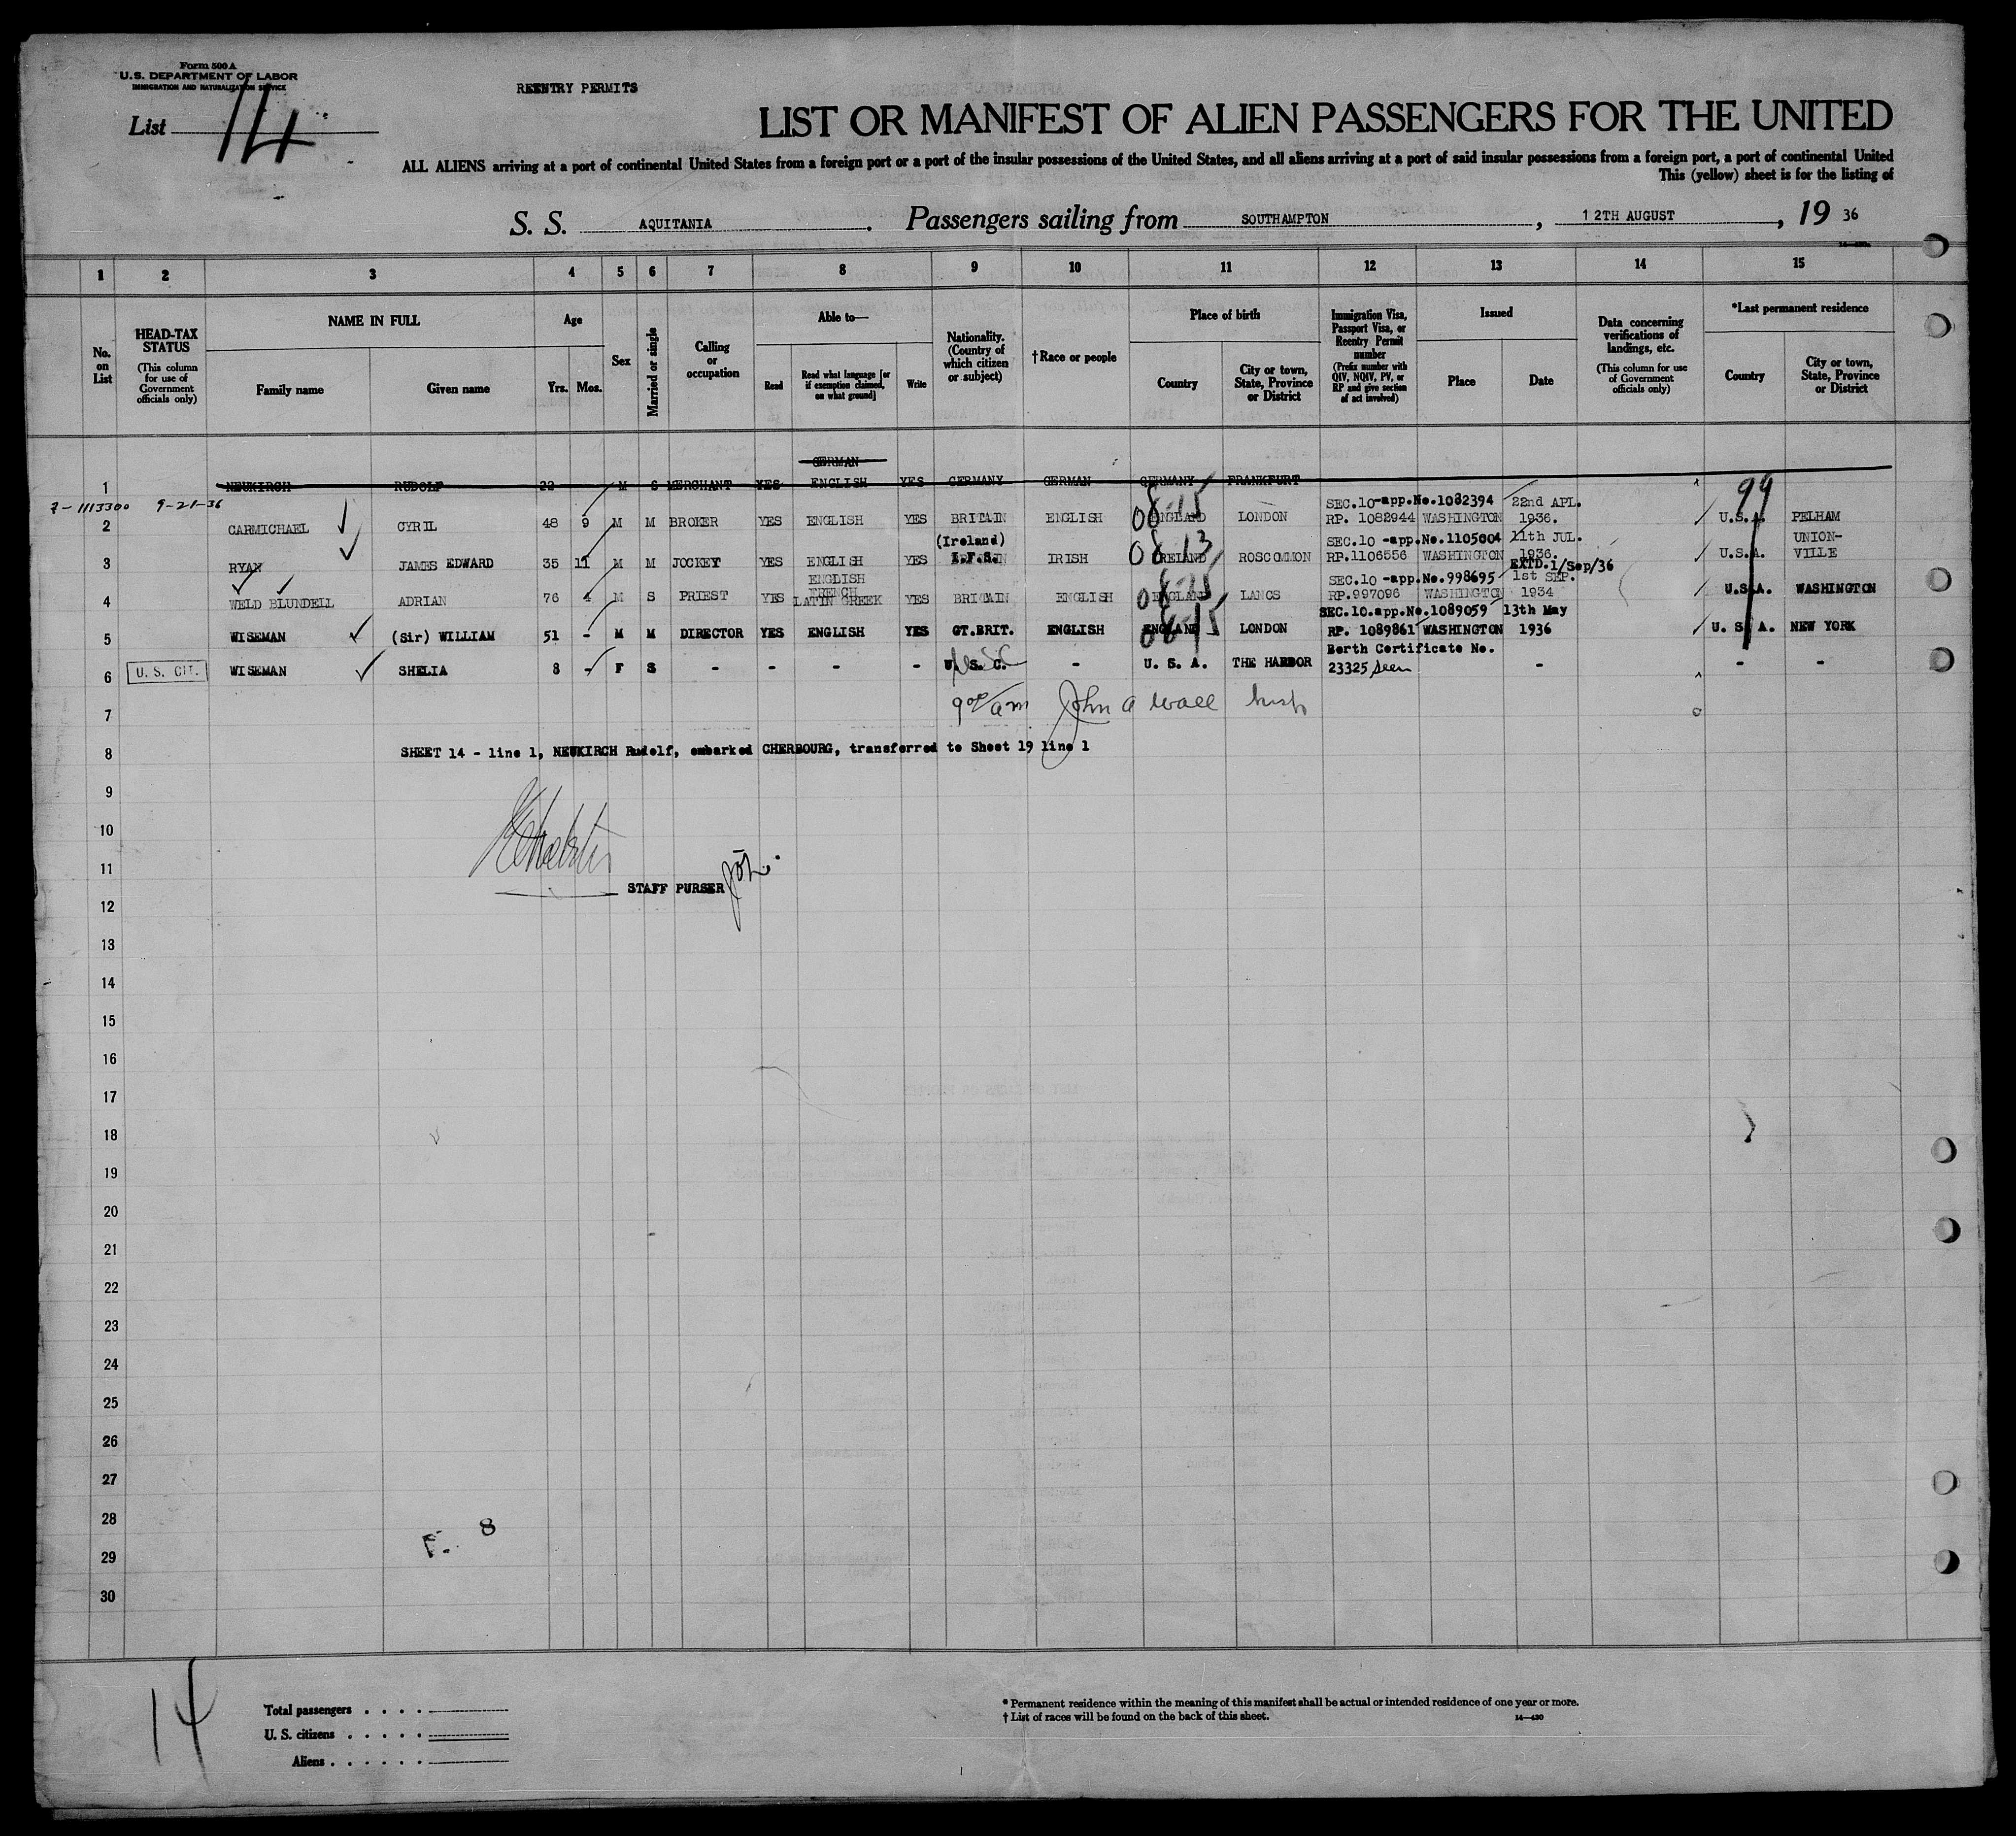 Form 500 A
U.S. DEPARTMENT OF LABOR
IMMIGRATION AND NATURALIZATION SERVICE
List 14
REENTRY PERMITS
LIST OR MANIFEST OF ALIEN PASSENGERS FOR THE UNITED
ALL ALIENS arriving at a port of continental United States from a foreign port or a port of the insular possessions of the United States, and all aliens arriving at a port of said insular possessions from a foreign port, a port of continental United
This (yellow) sheet is for the listing of
S. S. AQUITANIA. Passengers sailing from SOUTHAMPTON, 12TH AUGUST, 19 36
1 2 3 4 5 6 7 8 9 10 11 12 13 14 15
No. on List
HEAD-TAX STATUS (This column for use of Government officials only)
NAME IN FULL
Family name
Given name
Age
Yrs. Mos.
Sex
Married or single
Calling or occupation
Able to—
Read
Read what language [or if exemption claimed, on what ground]
Write
Nationality. (Country of which citizen or subject)
†Race or people
Place of birth
Country
City or town, State, Province or District
Immigration Visa, Passport Visa, or Reentry Permit number (Prefix number with QIV, NQIV, PV, or RP and give section of act involved)
Issued
Place
Date
Data concerning verifications of landings, etc. (This column for use of Government officials only)
*Last permanent residence
Country
City or town, State, Province or District
GERMAN
1 NEUKIRCH RUDOLF 22 M S MERCHANT YES ENGLISH YES GERMANY GERMAN GERMANY FRANKFURT
7-1113300 9-21-36
99
08-15
SEC.10-app.No.1082394 22nd APL.
2 CARMICHAEL CYRIL 48 9 M M BROKER YES ENGLISH YES BRITAIN ENGLISH ENGLAND LONDON RP. 1082944 WASHINGTON 1936. U.S.A. PELHAM
(Ireland) 08-13 SEC.10 -app.No.1105004 11th JUL. UNION-
3 RYAN JAMES EDWARD 35 11 M M JOCKEY YES ENGLISH YES I.F.S. IRISH IRELAND ROSCOMMON RP.1106556 WASHINGTON 1936. U.S.A. VILLE
EXTD. 1/Sep/36
ENGLISH 08-15 SEC.10 -app.No.998695 1st SEP.
FRENCH
4 WELD BLUNDELL ADRIAN 76 4 M S PRIEST YES LATIN GREEK YES BRITAIN ENGLISH ENGLAND LANCS RP.997096 WASHINGTON 1934 U.S.A. WASHINGTON
08-15 SEC.10.app.No.1089059 13th May
5 WISEMAN (Sir) WILLIAM 51 - M M DIRECTOR YES ENGLISH YES GT.BRIT. ENGLISH ENGLAND LONDON RP. 1089861 WASHINGTON 1936 U. S. A. NEW YORK
Berth Certificate No.
6 U. S. CIT. WISEMAN SHELIA 8 - F S - - - - U. S. C. - U. S. A. THE HARBOR 23325 seen - - -
7 9 00/am John A Wall Insp
8 SHEET 14 - line 1, NEUKIRCH Rudolf, embarked CHERBOURG, transferred to Sheet 19 line 1
9
10
11
STAFF PURSER
12
13
14
15
16
17
18
19
20
21
22
23
24
25
26
27
28
F. 8
29
30
14
Total passengers
U. S. citizens
Aliens
* Permanent residence within the meaning of this manifest shall be actual or intended residence of one year or more.
† List of races will be found on the back of this sheet.
14—430